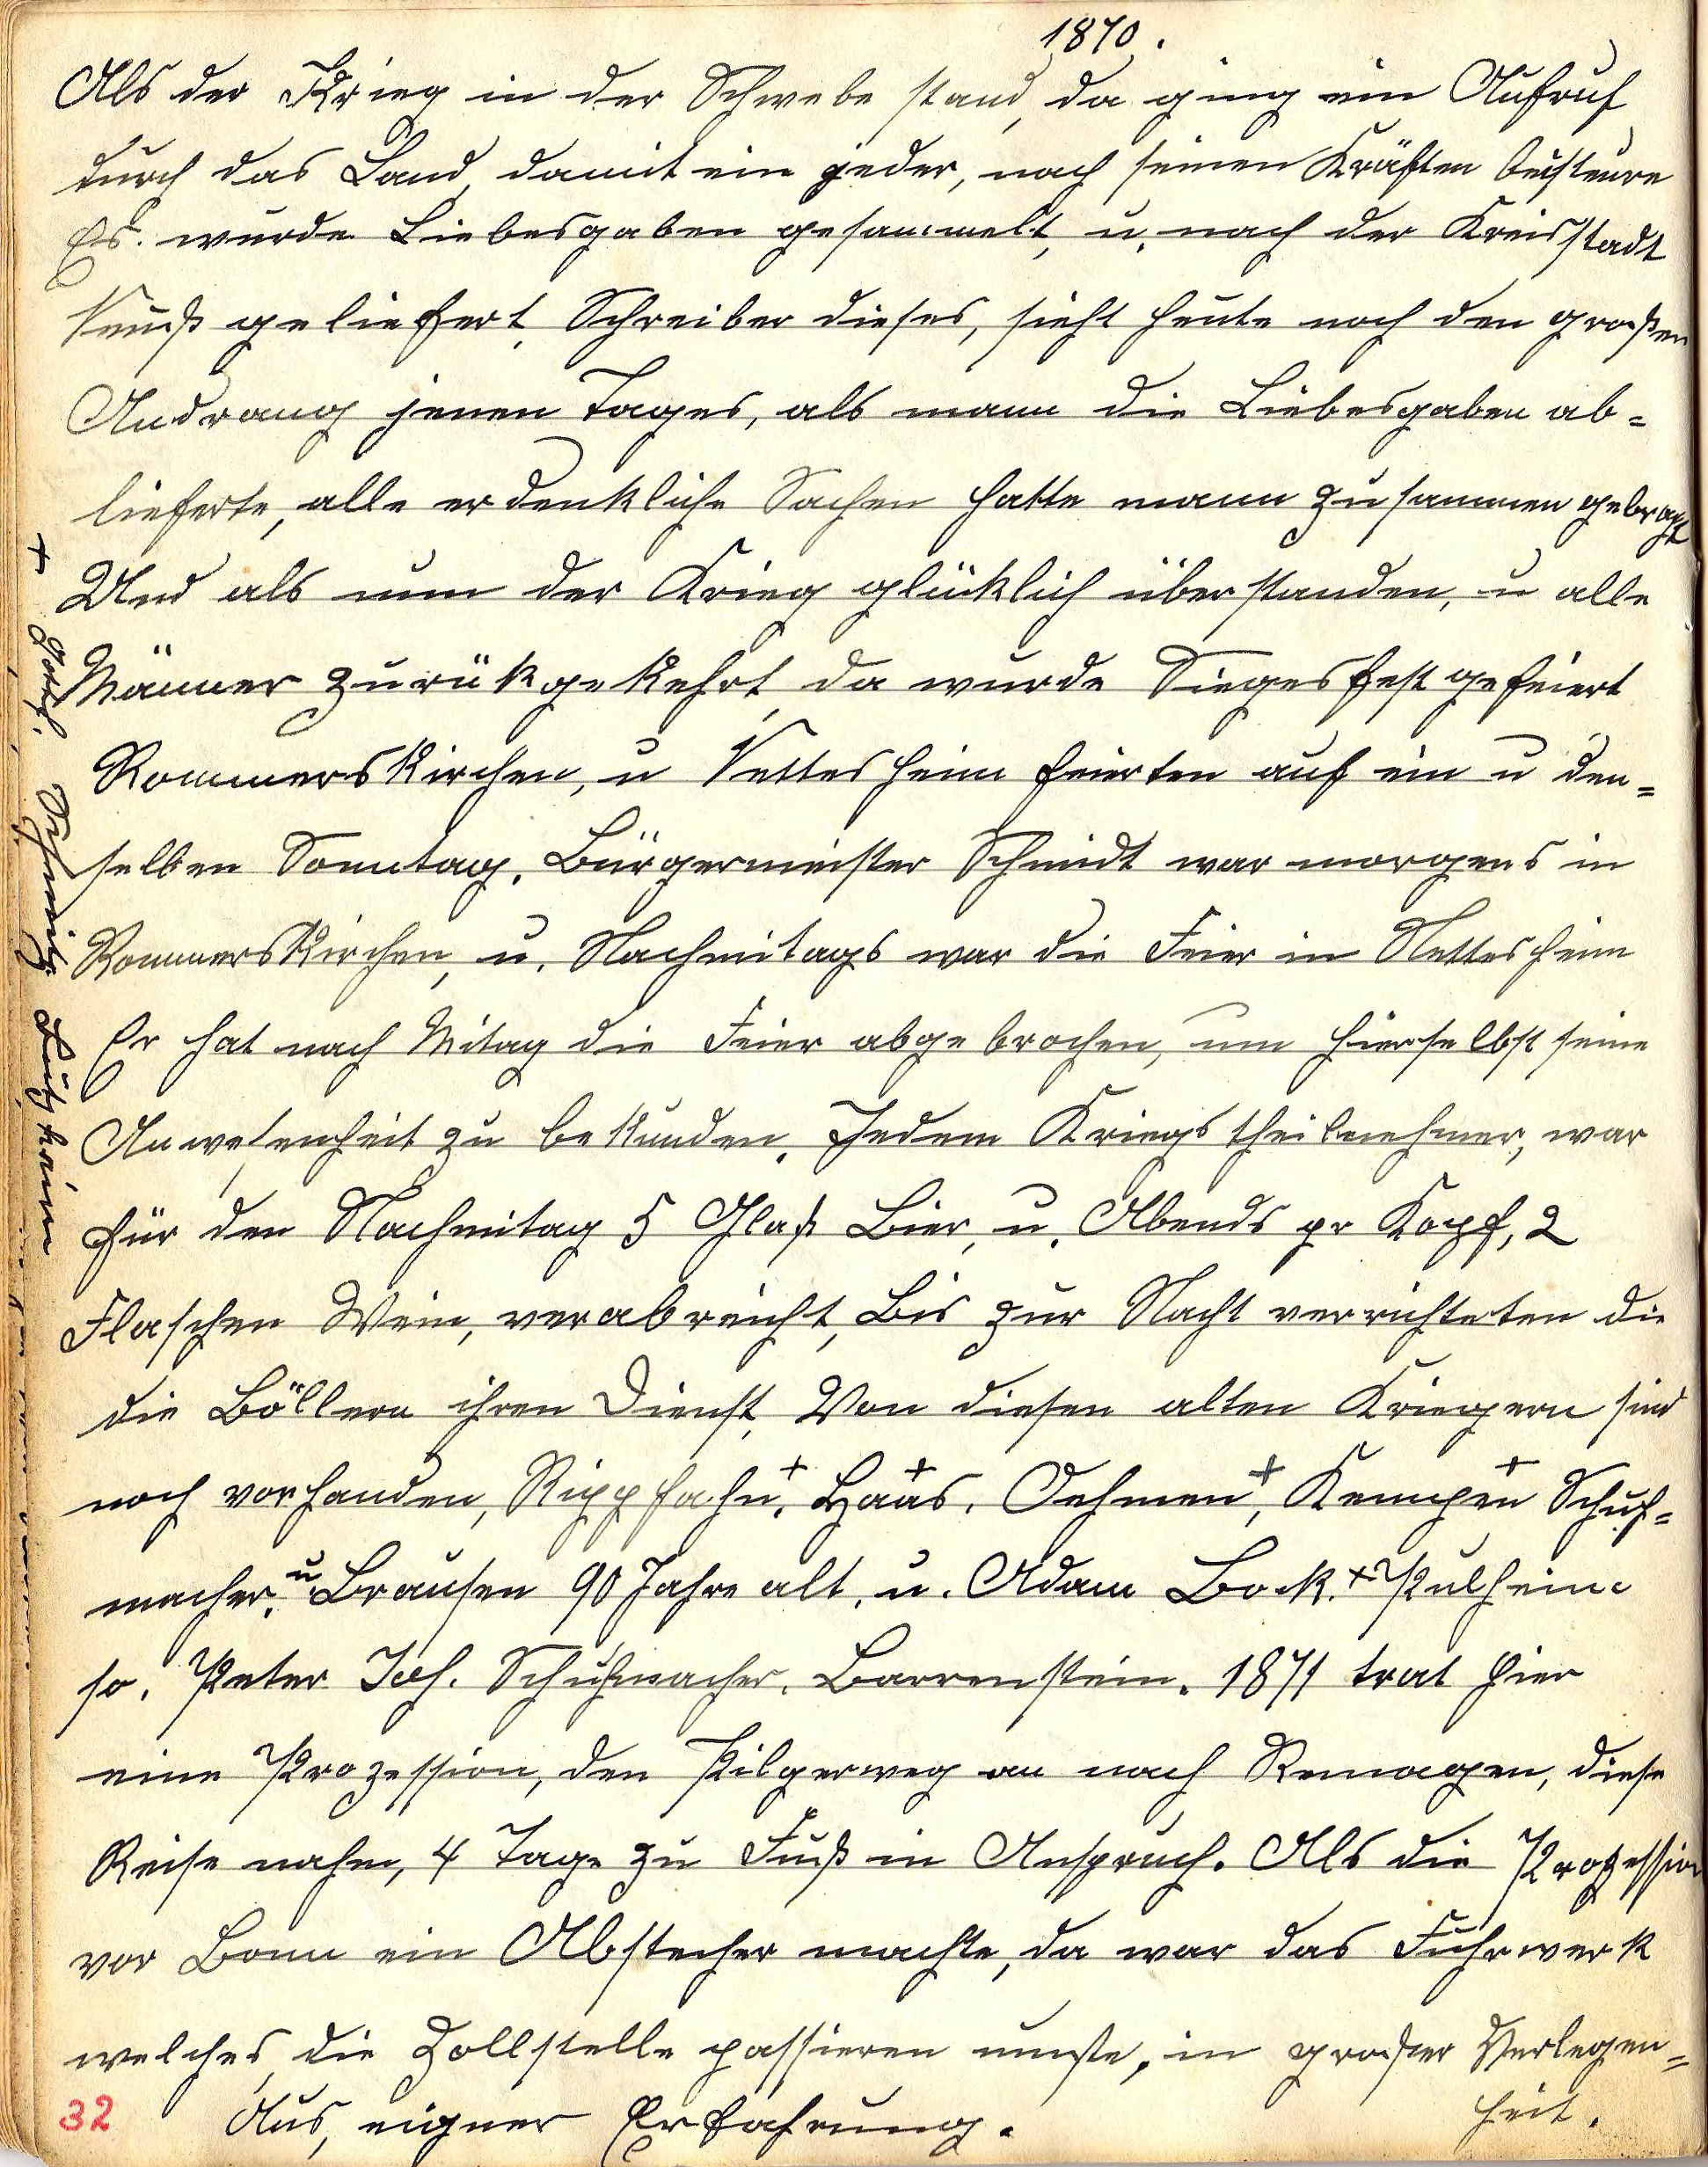 1870.
Als der Krieg in der Schwebe stand, da ging ein Aufruf
durch das Land, damit ein jeder, nach seinen Kräften beisteure
Es. wurde Liebesgaben gesammelt, u. nach der Kreisstadt
Neuß geliefert, Schreiber dieses, sieht heute noch den großen
Andrang jenen Tages, als mann die Liebesgaben ab=
lieferte, alle erdenkliche Sachen hatte mann zusammen gebragt
Und als nun der Krieg glüklich überstanden, u alle
Männer zurükgekehrt, da wurde Siegesfest gefeiert
Rommerskirchen, u Nettesheim feierten auf ein u den=
selben Sonntag. Bürgermeister Schmidt war morgens in
Rommerskirchen, u. Nachmitags war die Feier in Nettesheim
Er hat nach Mitag die Feier abgebrochen, um hierselbst seine
Anwesenheit zu bekunden. Jedem Kriegstheilnehmer, war
für den Nachmitag 5 Glaß Bier, u. Abends pr Kopf, 2
Flaschen Wein, verabreicht, Bis zur Nacht verrichteten die
die Böllern ihren Dienst, Von diesen alten Kriegern sind
noch vorhanden, Rippfahn+, Haas+. Oehmen+, Kempen+ Schuh=
macher. u. Brausen 90 Jahre alt. u. Adam Bock.+ Pulheim
so. Peter Jos. Schuhmacher. Barrenstein. 1871 trat hier
eine Prozession, den Pilgerweg an nach Remagen, diese
Reise nahm, 4 Tage zu Fuß in Anspruch. Als die Prozession
vor Bonn ein Abstecher machte, da war das Fuhrwerk
welches, die Zollstelle passieren mußte, in großer Verlegen=
heit.
Aus, eigner Erfahrung.
32
+ Gottf. Schmitz Bützheim